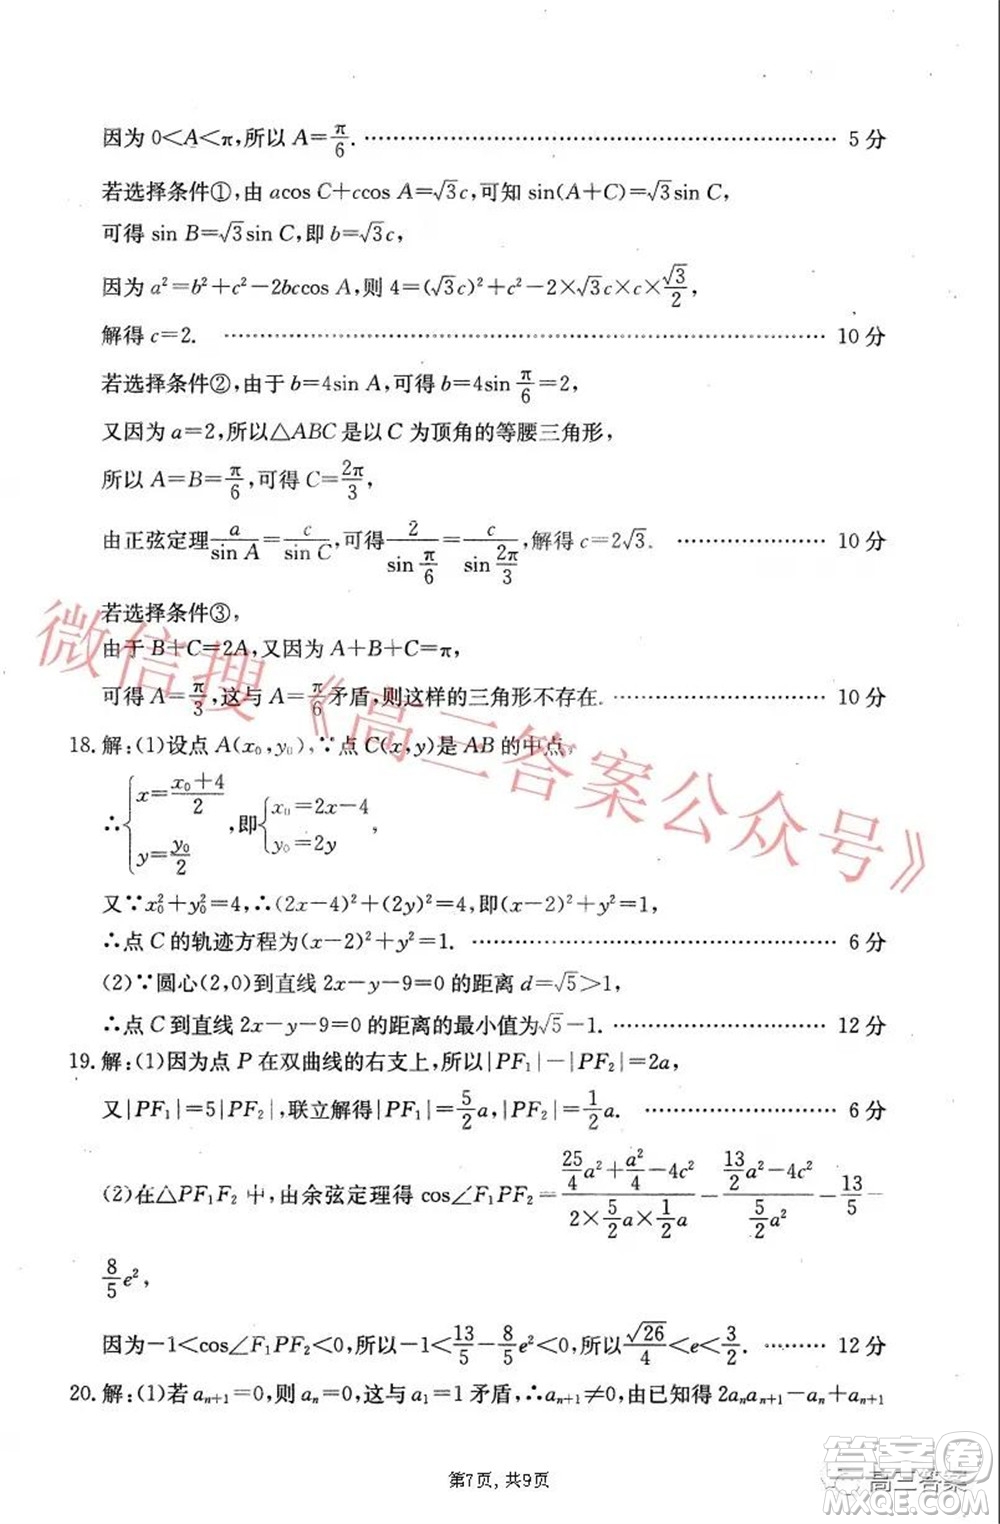 因为 0<A<π,所以 A=π/6. ………… 5 分
若选择条件①,由 acos C+ccos A=√3c,可知 sin(A+C)=√3sin C,
可得 sin B=√3sin C,即 b=√3c,
因为 a²=b²+c²-2bccos A,则 4=(√3c)²+c²-2×√3c×c×√3/2,
解得 c=2. ………… 10 分
若选择条件②,由于 b=4sin A,可得 b=4sin π/6=2,
又因为 a=2,所以△ABC 是以 C 为顶角的等腰三角形,
所以 A=B=π/6,可得 C=2π/3,
由正弦定理 a/sin A=c/sin C,可得 2/sin π/6=c/sin 2π/3,解得 c=2√3. ………… 10 分
若选择条件③,
由于 B+C=2A,又因为 A+B+C=π,
可得 A=π/3,这与 A=π/6矛盾,则这样的三角形不存在. ………… 10 分
18.解:(1)设点 A(x₀,y₀),∵点 C(x,y)是 AB 的中点,
∴{x=(x₀+4)/2, y=y₀/2,即{x₀=2x-4, y₀=2y,
又∵x₀²+y₀²=4,∴(2x-4)²+(2y)²=4,即(x-2)²+y²=1,
∴点 C 的轨迹方程为(x-2)²+y²=1. ………… 6 分
(2)∵圆心(2,0)到直线 2x-y-9=0 的距离 d=√5>1,
∴点 C 到直线 2x-y-9=0 的距离的最小值为√5-1. ………… 12 分
19.解:(1)因为点 P 在双曲线的右支上,所以|PF₁|-|PF₂|=2a,
又|PF₁|=5|PF₂|,联立解得|PF₁|=5/2a,|PF₂|=1/2a. ………… 6 分
(2)在△PF₁F₂ 中,由余弦定理得 cos∠F₁PF₂=(25/4a²+a²/4-4c²)/(2×5/2a×1/2a)=(13/2a²-4c²)/(5/2a²)=13/5-
8/5e²,
因为-1<cos∠F₁PF₂<0,所以-1<13/5-8/5e²<0,所以√26/4<e<3/2. ……… 12 分
20.解:(1)若 aₙ₊₁=0,则 aₙ=0,这与 a₁=1 矛盾,∴aₙ₊₁≠0,由已知得 2aₙaₙ₊₁-aₙ+aₙ₊₁
第7页,共9页
微信搜《高三答案公众号》
高三答案
答案圈
MXQE.COM